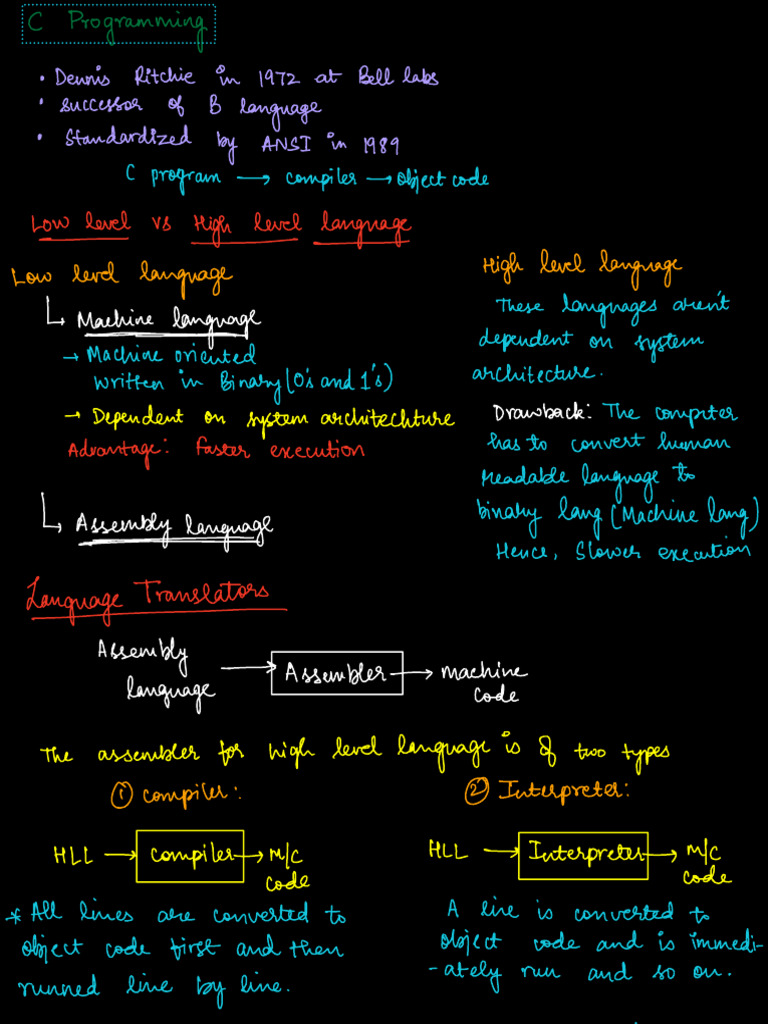 C Programming
• Dennis Ritchie in 1972 at Bell labs
• successor of B language
• Standardized by ANSI in 1989
C program → compiler → object code
Low level vs High level language
Low level language
Machine language
→ Machine oriented
written in Binary (0's and 1's)
→ Dependent on system architechture
Advantage: faster execution
Assembly language
High level language
These languages aren't
dependent on system
architecture.
Drawback: The computer
has to convert human
readable language to
binary lang (Machine lang)
Hence, Slower execution
Language Translators
Assembly
language
→ Assembler → machine
code
The assembler for high level language is of two types
① compiler:
HLL → compiler → M/C
code
* All lines are converted to
object code first and then
runned line by line.
② Interpreter:
HLL → Interpreter → M/C
code
A line is converted to
object code and is immedi-
-ately run and so on.